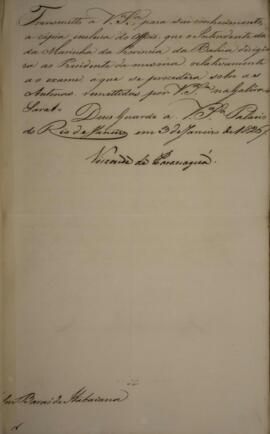 Transmitto a V. Sª. para seu conhecimento,
a cópia inclusa do Officio, que o Intendente da
da Marinha da Provincia da Bahia dirigio
ao Presidente da mesma relativamente
ao exame a que se procedêra sobre as
remettidas por V. Sª. na Galera
Deus Guarde a V. Sª. Palacio
do Rio de Janeiro em 3 de Janeiro de 1826
Visconde de Paranaguá
Barão de Itabaiana